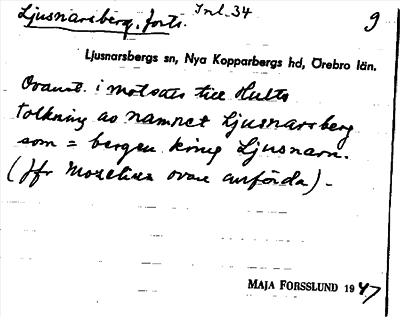 Ljusnarsberg, forts. Inl. 34 9
Ljusnarsbergs sn, Nya Kopparbergs hd, Örebro län.
Ovanst. i motsats till Hults
tolkning av namnet Ljusnarsberg
som = bergen kring Ljusnarn.
(Jfr Moselius ovan anförda) -
MAJA FORSSLUND 1947